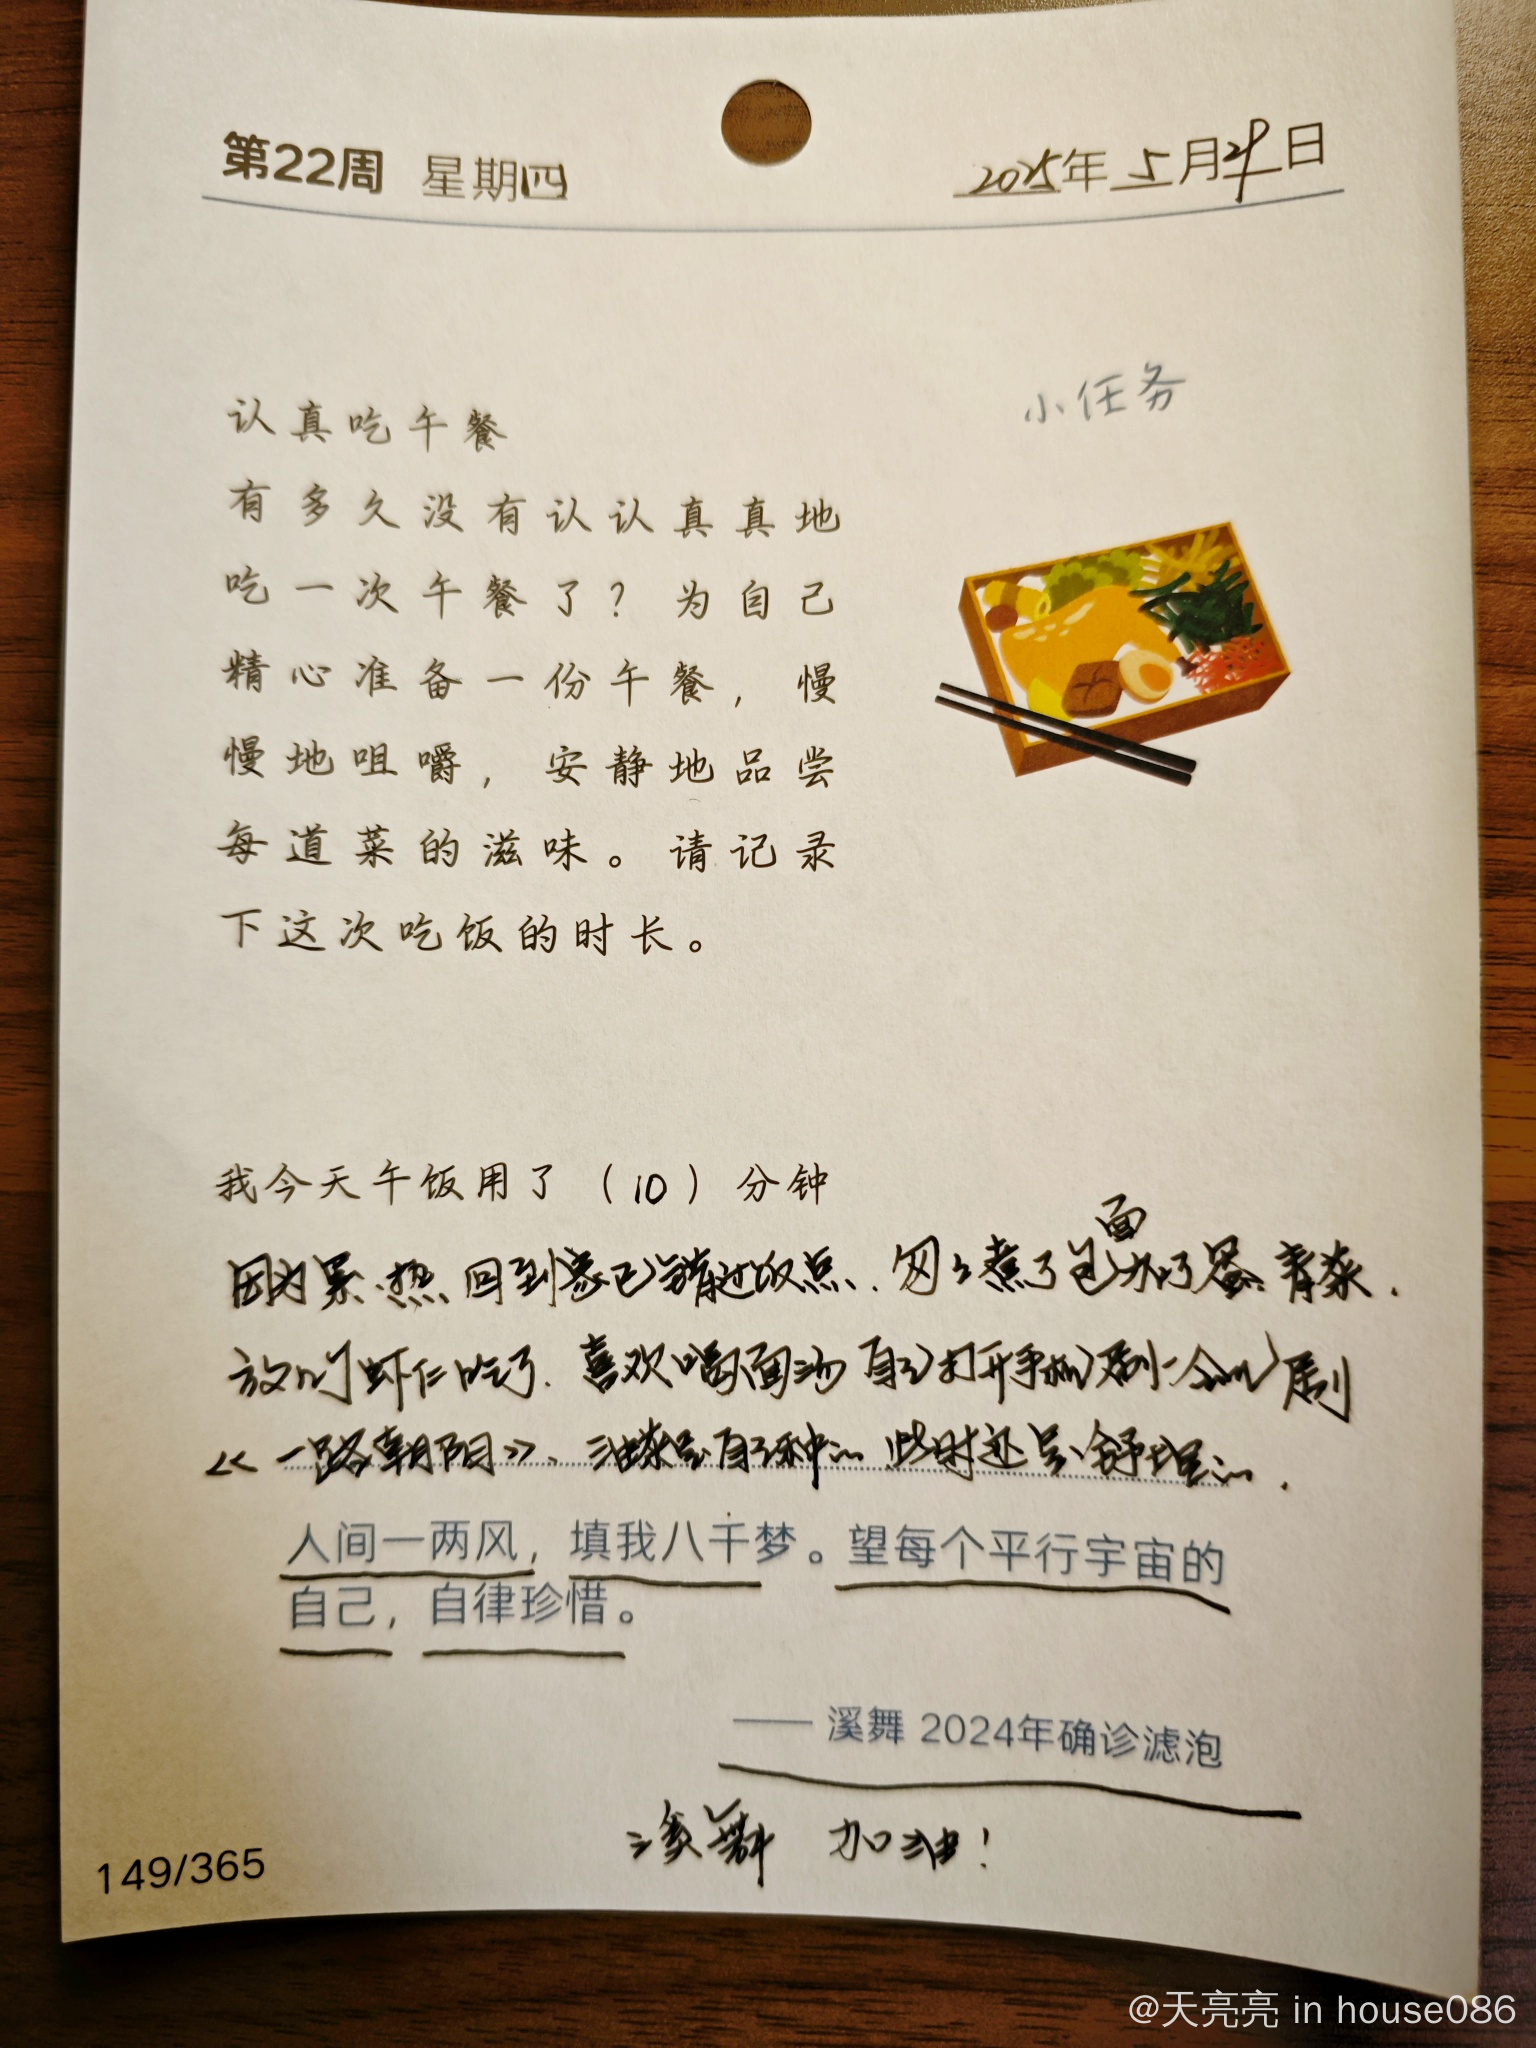 第22周 星期四
2025年 5月29日
小任务
认真吃午餐
有多久没有认认真真地
吃一次午餐了？为自己
精心准备一份午餐，慢
慢地咀嚼，安静地品尝
每道菜的滋味。请记录
下这次吃饭的时长。
我今天午饭用了（10）分钟
因为累、热、回到家已错过饭点、匆匆煮了包面加了蛋、青菜、
放几个虾仁吃了. 喜欢喝面汤 打开手机 剧
《一路朝阳》、 此时还是
人间一两风，填我八千梦。望每个平行宇宙的
自己，自律珍惜。
—— 溪舞 2024年确诊滤泡
溪舞 加油！
149/365
@天亮亮 in house086